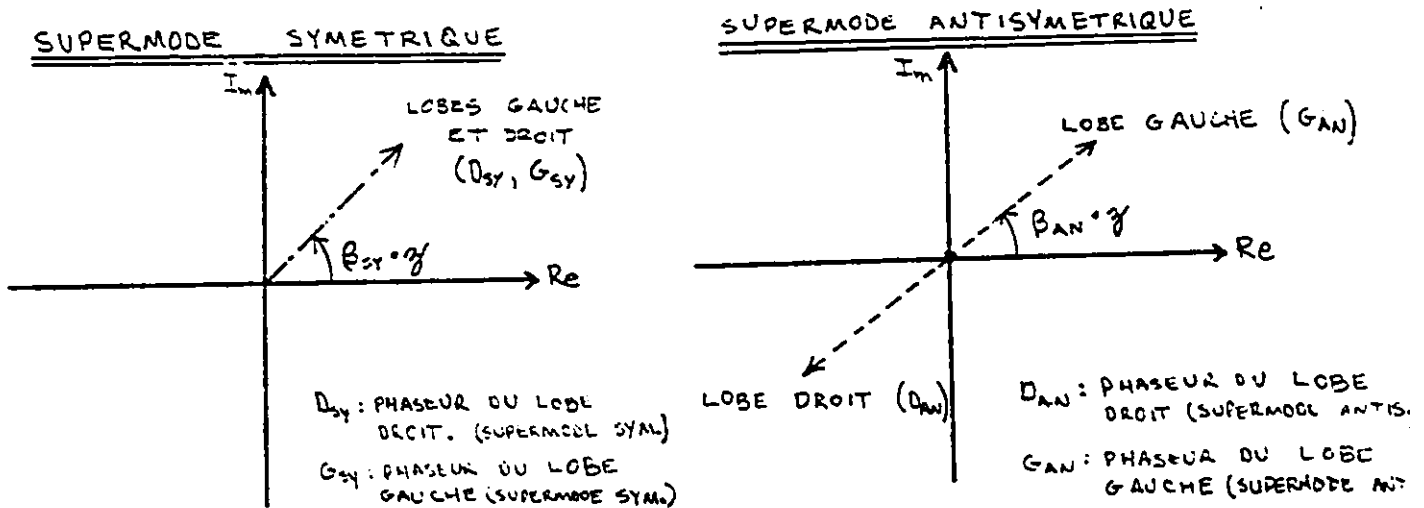 SUPERMODE SYMETRIQUE
Im
LOBES GAUCHE
ET DROIT
(DSY, GSY)
βSY·z
Re
DSY: PHASEUR DU LOBE
DROIT. (SUPERMODE SYM.)
GSY: PHASEUR DU LOBE
GAUCHE (SUPERMODE SYM.)
SUPERMODE ANTISYMETRIQUE
Im
LOBE GAUCHE (GAN)
βAN·z
Re
LOBE DROIT (DAN)
DAN: PHASEUR DU LOBE
DROIT (SUPERMODE ANTIS.
GAN: PHASEUR DU LOBE
GAUCHE (SUPERMODE ANT